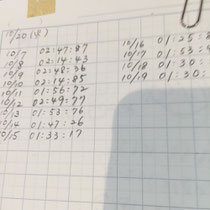 10/20(火)
10/7 02:47:87
10/8 02:14:43
10/9 02:48:36
10/10 02:14:85
10/11 01:56:72
10/12 02:49:77
10/13 01:53:76
10/14 01:47:26
10/15 01:33:17
10/16 01:25:
10/17 01:53:4
10/18 01:30:
10/19 01:30: